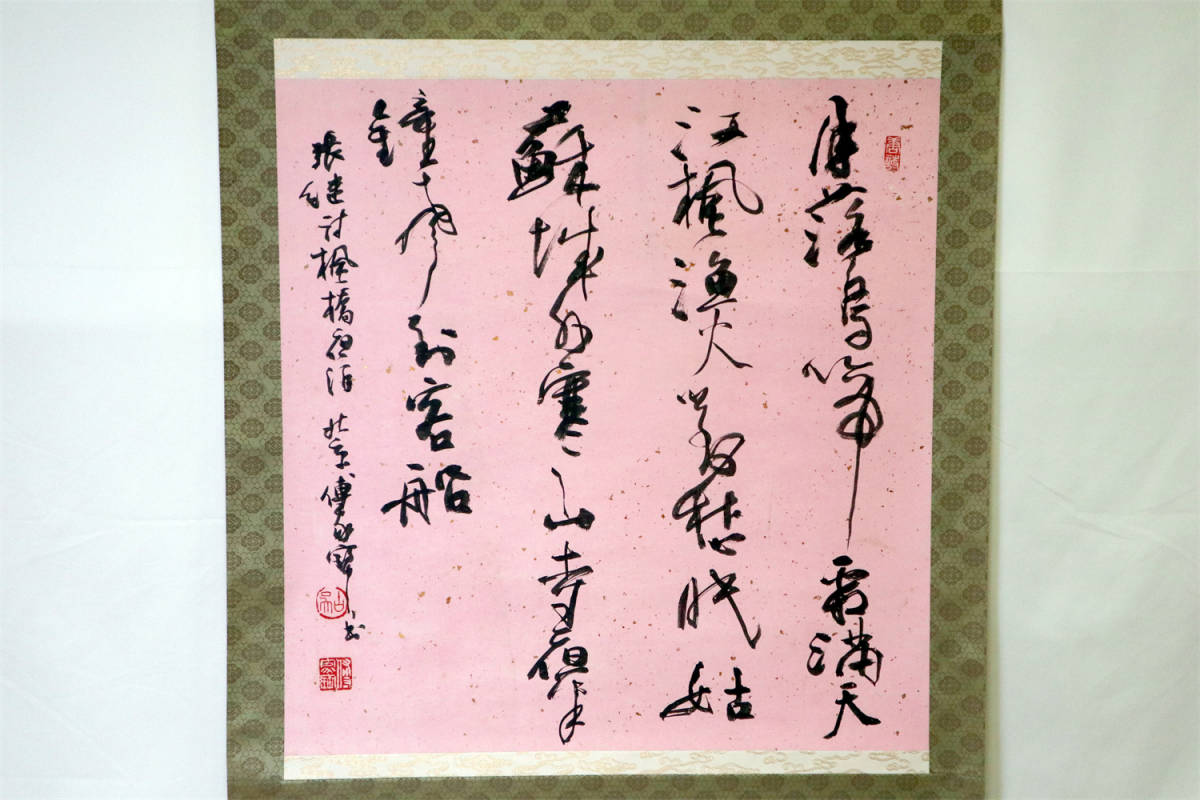 月落烏啼霜滿天
江楓漁火對愁眠姑
蘇城外寒山寺夜半
鐘聲到客船
張継詩楓橋夜泊 北京傅家寶書